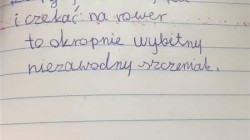 i czekać na rower
to okropnie wybitny
niezawodny szczeniak.